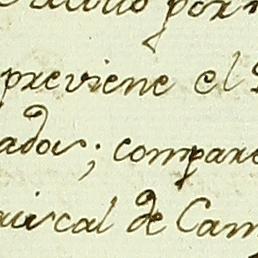 por
previene el
ados; compare
riscal de Cam